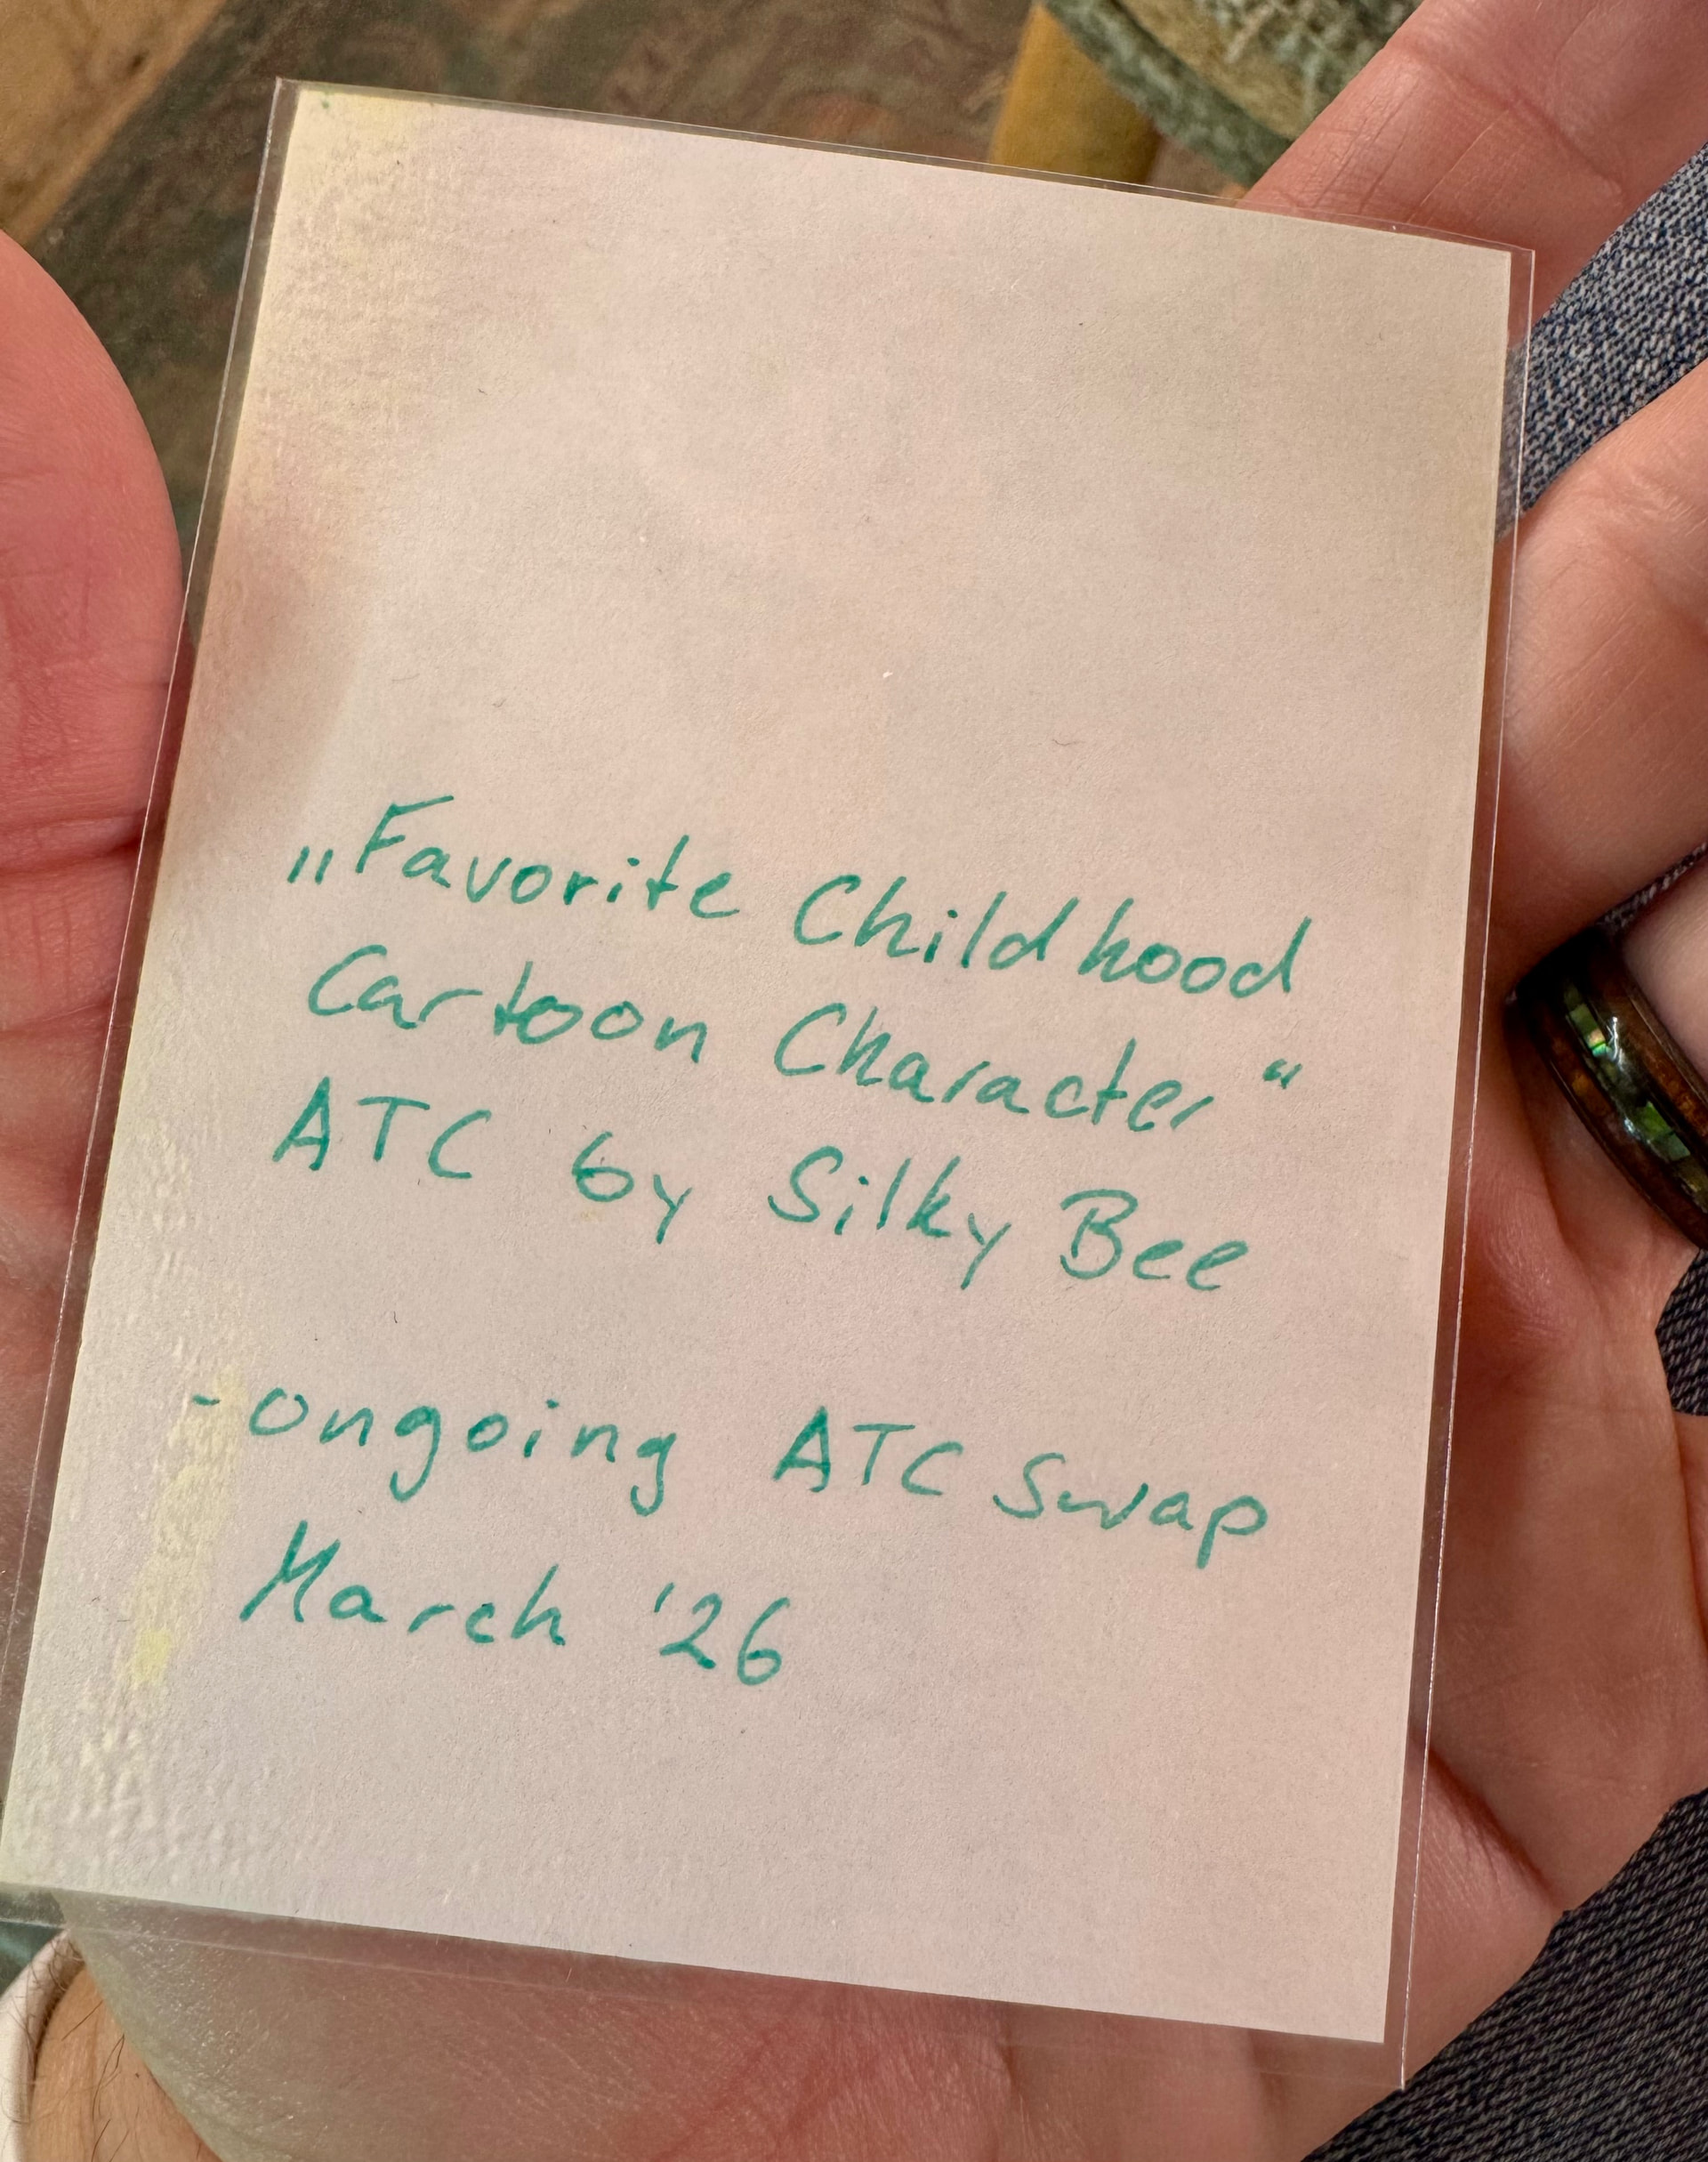 „Favorite Childhood
Cartoon Character“
ATC by Silky Bee
-ongoing ATC Swap
March '26